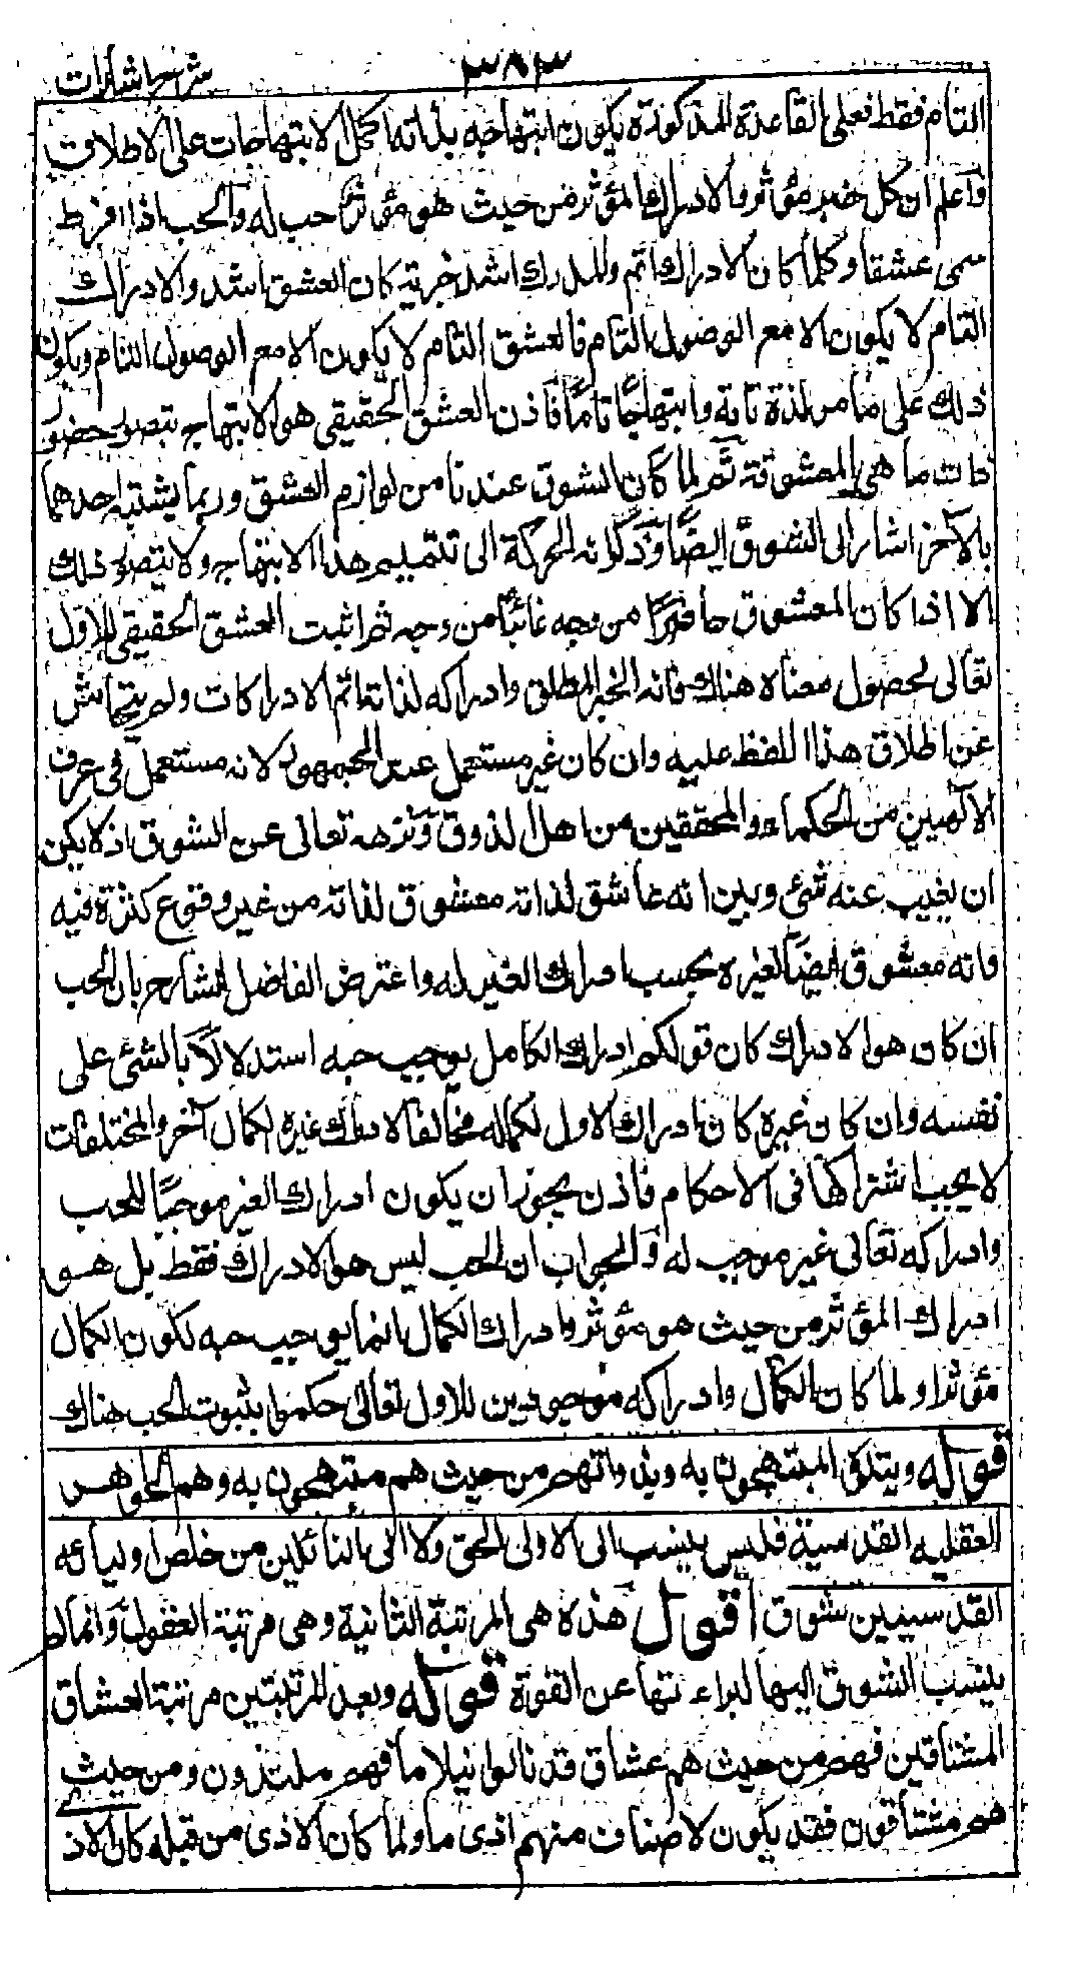 ٣٨٣
شرح اشارات
التام فقط فعلى القاعدة المذكورة يكون ابتهاجه بذاته اكمل الابتهاجات على الاطلاق
واعلم ان كل خير مؤثر والادراك المؤثر من حيث هو مؤثر حب له والحب اذا افرط
سمى عشقا وكلما كان الادراك اتم والمدرك اشد خيرية كان العشق اشد والادراك
التام لا يكون الا مع الوصول التام فالعشق التام لا يكون الا مع الوصول التام ويكون
ذلك على ما مر لذة تامة وابتهاجًا تامًا فاذن العشق الحقيقى هو الابتهاج بتصور حضور
ذات ما هى المعشوقة ثم لما كان الشوق عندنا من لوازم العشق وربما يشتبه احدهما
بالآخر اشار الى الشوق ايضًا وذكر انه الحركة الى تتميم هذا الابتهاج ولا يتصور ذلك
الا اذا كان المعشوق حاضرًا من وجه غائبًا من وجه ثم اثبت العشق الحقيقى للاول
تعالى لحصول معناه هناك فانه الخير المطلق وادراكه لذاته اتم الادراكات ولم يتحاش
عن اطلاق هذا اللفظ عليه وان كان غير مستعمل عند الجمهور لانه مستعمل فى عرف
الالهيين من الحكماء والمحققين من اهل الذوق ونزهه تعالى عن الشوق اذ لا يمكن
ان يغيب عنه شئ وبين انه عاشق لذاته معشوق لذاته من غير وقوع كثرة فيه
وانه معشوق ايضًا لغيره بحسب ادراك الغير له واعترض الفاضل الشارح بان الحب
ان كان هو الادراك كان قولكم ادراك الكامل يوجب حبه استدلالًا بالشئ على
نفسه وان كان غيره كان ادراك الاول لكماله مخالفا لادراك غيره لكمال آخر والمختلفات
لا يجب اشتراكها فى الاحكام فاذن يجوز ان يكون ادراك الغير موجبًا للحب
وادراكه تعالى غير موجب له والجواب ان الحب ليس هو الادراك فقط بل هو
ادراك المؤثر من حيث هو مؤثر وادراك الكمال انما يوجب حبه لكون الكمال
مؤثرا ولما كان الكمال وادراكه موجودين للاول تعالى حكموا بثبوت الحب هناك
قوله ويتلوه المبتهجون به وبذواتهم من حيث هم مبتهجون به وهم الجواهر
العقليه القدسية فليس ينسب الى الاول الحق ولا الى التائلين من خلص اوليائه
القدسيين شوق اقول هذه هى المرتبة الثانية وهى مرتبة العقول وانما لم
ينسب الشوق اليها لبراءتها عن القوة قوله وبعد المرتبتين مرتبة العشاق
المشتاقين فهم من حيث هم عشاق قد نالوا نيلا ما فهم ملتذون ومن حيث
هم مشتاقون فقد يكون لاصناف منهم اذى ما ولما كان الاذى من قبله كان الاذ